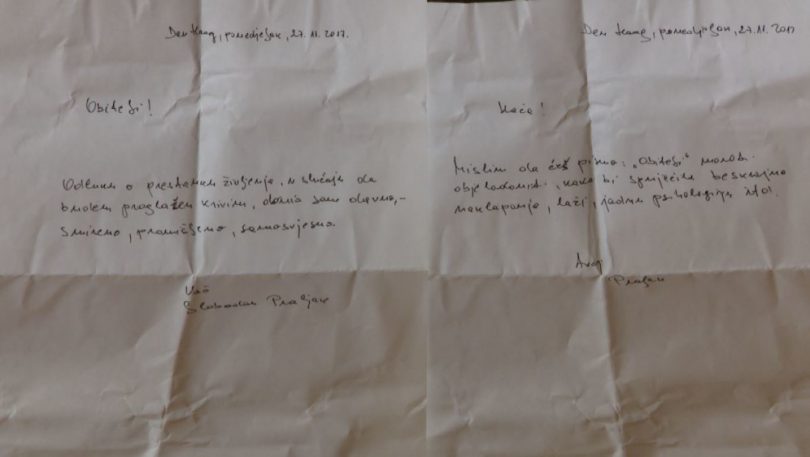 Den Haag, ponedjeljak, 27.11.2017.
Obitelji!
Odluku o prestanku življenja, u slučaju da
budem proglašen krivim, donio sam davno,-
smireno, promišljeno, samosvjesno.
Vaš
Slobodan Praljak
Den Haag, ponedjeljak, 27.11.2017
Kaća!
Mislim da ćeš pismo: „Obitelji" morati
objelodaniti, kako bi spriječila beskrajna
naklapanja, laži, jadnu psihologiju itd.
Praljak